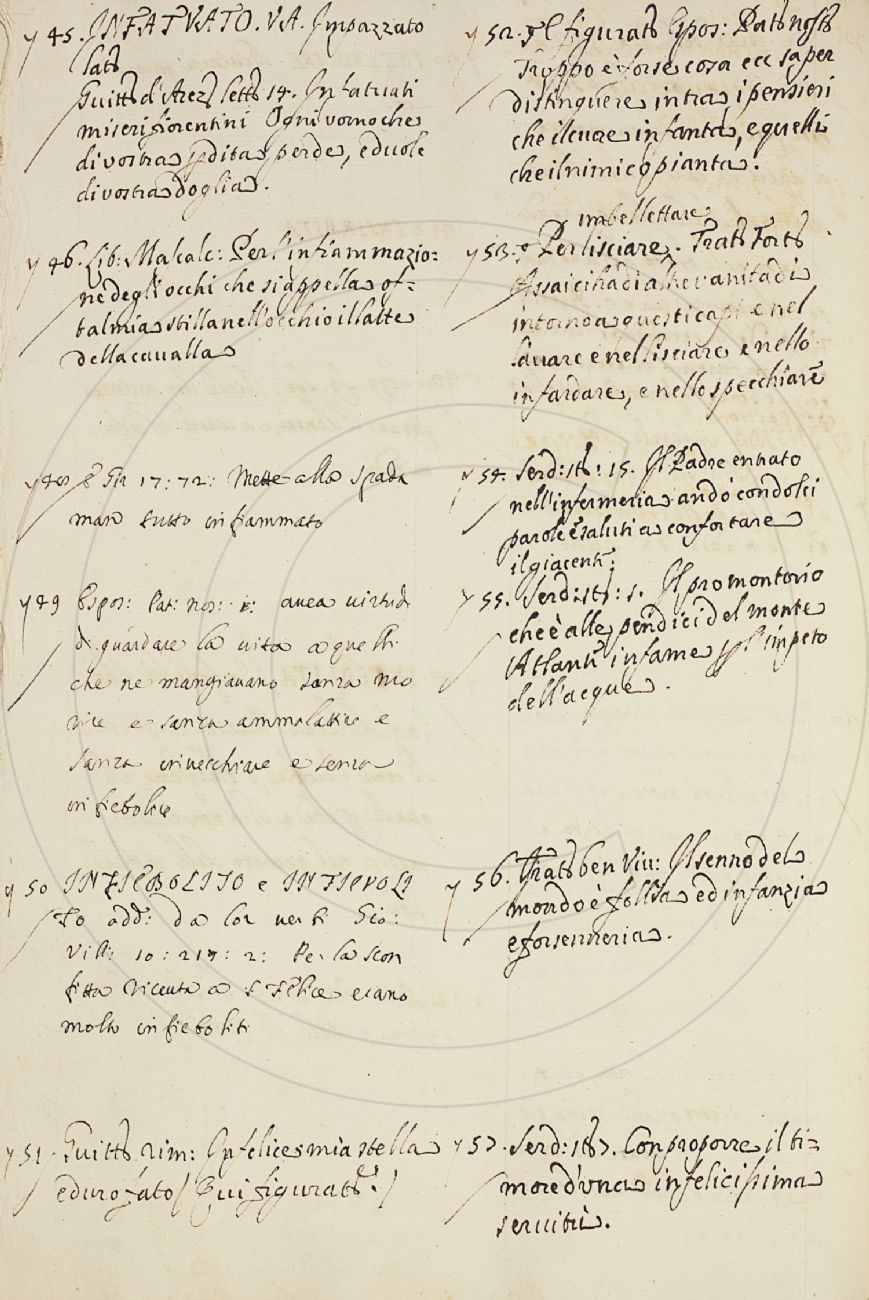 45. INFATVATO.VA. Impazzato
lat.
Guitt. d'Arez. lett. 14. Infatuati
miseri fiorentini Ogni uomo che
di vostra pdita perde, e duole
di vostra doglia.
46. Lib: Mascalc: Per l'infiammazio=
ne degli occhi che si appella of=
talmia stilla nell'occhio il latte
della cavalla
17: 72: Mette alla spada
man tutto infiammato
49 Espos: Pat: nos: avea virtudi
di guardare la vita a quelli
che ne mangiavano sanza mo
rire e sanza ammalattie e
sanza invecchiare e senza
infiebolire
50 INFIEBOLITO e INFIEVOLI
TO add: da lor verbi Gio:
Vill: 10: 217: 2: Per la scon
fitta ricevuta a S. Felice erano
molto infieboliti
51. Guitt. rim: Infelice mia stella
e duro fato / Qui figurat. /
52. figurat. Espos: Patnost.
Troppo è forse cosa ecc saper
distinguere intra i pensieri
che il cuore infanta, e quelli
che il nimico pianta.
imbellettare
53. Per lisciare. Tratt. Fort.
Assai ci ha di altre vanitadi
intorno a questi capi e nel
lavare e nel lisciare e nello
infardare, e nello specchiare
54. Serd: st: 15. Il Padre entrato
nell'infermeria andò con dolci
parole e saluti a confortare
il giacente.
55. Serd: st: 1. Il promontorio
che è alle pendici del monte
Atlante infame pl'impeto
dell'acque.
56. Tratt. ben Viv: Il senno del
mondo è follia ed infanzia
e forsenneria.
57. Serd: st: 7. Con proporre il ti=
more d'una infelicissima
servitù.